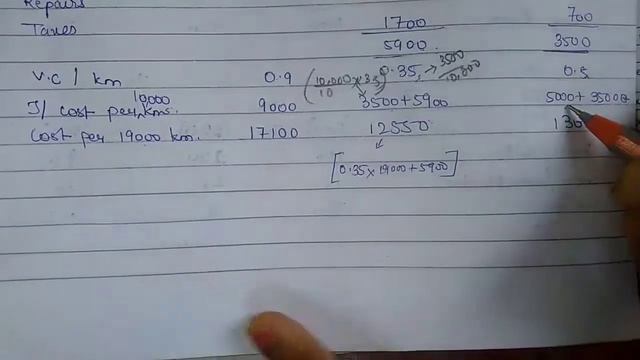 Repairs
Taxes 1700 700
5900 3500
V.C / km 0.9 (10,000 × 3.5 / 10) 0.35, → 3500 / 10,000 0.5
T/ cost per 10000 km. 9000 3500+5900 5000+3500
Cost per 19000 km. 17100 12550 13
[0.35×19000+5900]